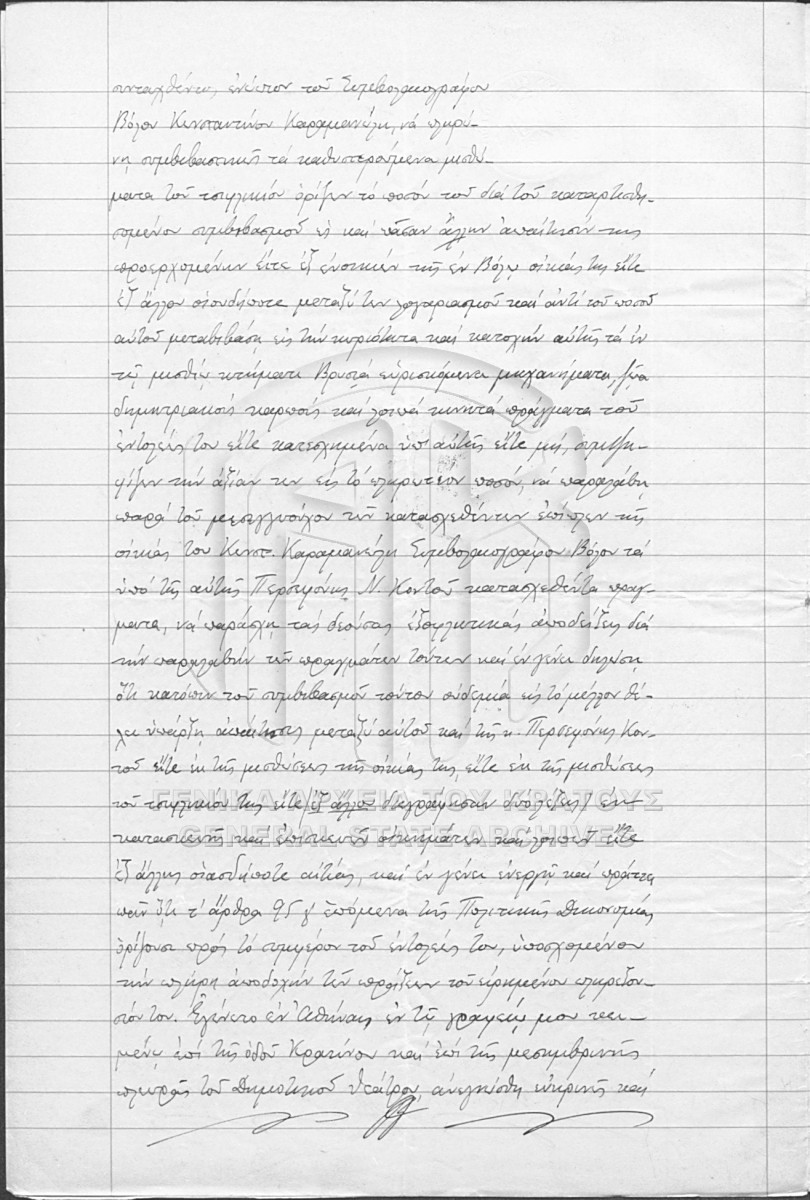 συνταχθέντος ἐνώπιον τοῦ Συμβολαιογράφου
Βόλου Κωνσταντίνου Καραμανώλη, νά πληρώ-
νῃ συμβιβαστικῶς τά καθυστερούμενα μισθώ-
ματα τοῦ τσιφλικίου ὁρίζων τό ποσόν τοῦ διά τοῦ καταρτισθη-
σομένου συμβιβασμοῦ εἰς καί πᾶσαν ἄλλην ἀπαίτησίν της
προερχομένην εἴτε ἐξ ἐνοικίων τῆς ἐν Βόλῳ οἰκίας της εἴτε
ἐξ ἄλλου οἱουδήποτε μεταξύ των λογαριασμοῦ καί ἀντί τοῦ ποσοῦ
αὐτοῦ μεταβιβάσῃ εἰς τήν κυριότητα καί κατοχήν αὐτῆς τά ἐν
τῷ μισθίῳ κτήματι εὑρισκόμενα μηχανήματα, ζῶα
δημητριακούς καρπούς καί λοιπά κινητά πράγματα τοῦ
ἐντολέως του εἴτε κατεσχημένα ὑπ' αὐτῆς εἴτε μή, συμψη-
φίζων τήν ἀξίαν των εἰς τό πληρωτέον ποσόν, νά παραλάβῃ
παρά τοῦ μεσεγγυούχου τῶν κατασχεθέντων ἐπίπλων τῆς
οἰκίας του Κωνστ. Καραμανώλη Συμβολαιογράφου Βόλου τά
ὑπό τῆς αὐτῆς Περσεφόνης Ν. Κοντοῦ κατασχεθέντα πράγ-
ματα, νά παράσχῃ τάς δεούσας ἐξοφλητικάς ἀποδείξεις διά
τήν παραλαβήν τῶν πραγμάτων τούτων καί ἐν γένει δηλώσῃ
ὅτι κατόπιν τοῦ συμβιβασμοῦ τούτου οὐδεμία εἰς τό μέλλον θέ-
λει ὑπάρξῃ ἀπαίτησις μεταξύ αὐτοῦ καί τῆς κ. Περσεφόνης Κον-
τοῦ εἴτε ἐκ τῆς μισθώσεως τῆς οἰκίας της, εἴτε ἐκ τῆς μισθώσεως
τοῦ τσιφλικίου της εἴτε ἐξ ἄλλου διεγράφησαν δύο λέξεις ἐκ
κατασκευῆς καί ἐπισκευῶν οἰκημάτων καί λοιπῶν εἴτε
ἐξ ἄλλης οἱασδήποτε αἰτίας, καί ἐν γένει ἐνεργῇ καί πράττῃ
πᾶν ὅτι τ' ἄρθρα 95 ἑπόμενα τῆς Πολιτικῆς Δικονομίας
ὁρίζουσι πρός τό συμφέρον τοῦ ἐντολέως του, ὑποσχομένου
τήν πλήρη ἀποδοχήν τῶν πράξεων τοῦ εἰρημένου πληρεξου-
σίου του. Ἐγένετο ἐν Ἀθήναις ἐν τῷ γραφείῳ μου κει-
μένῳ ἐπί τῆς ὁδοῦ Κρατίνου καί ἐπί τῆς μεσημβρινῆς
πλευρᾶς τοῦ Δημοτικοῦ Θεάτρου, ἀνεγνώσθη εὐκρινῶς καί
ΓΕΝΙΚΑ ΑΡΧΕΙΑ ΤΟΥ ΚΡΑΤΟΥΣ
GENERAL STATE ARCHIVES